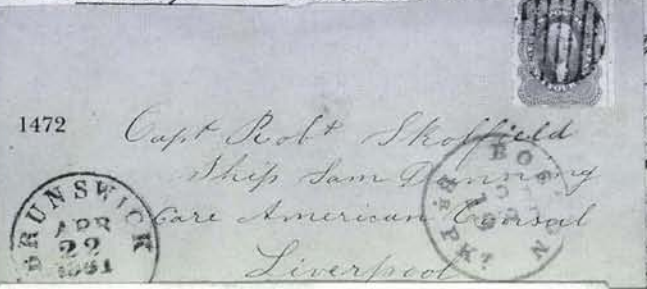 1472
Capt Robt Skolfield
Ship Sam Dunning
Care American Consul
Liverpool
BRUNSWICK
APR
22
1861
BOSTON
BR. PKT